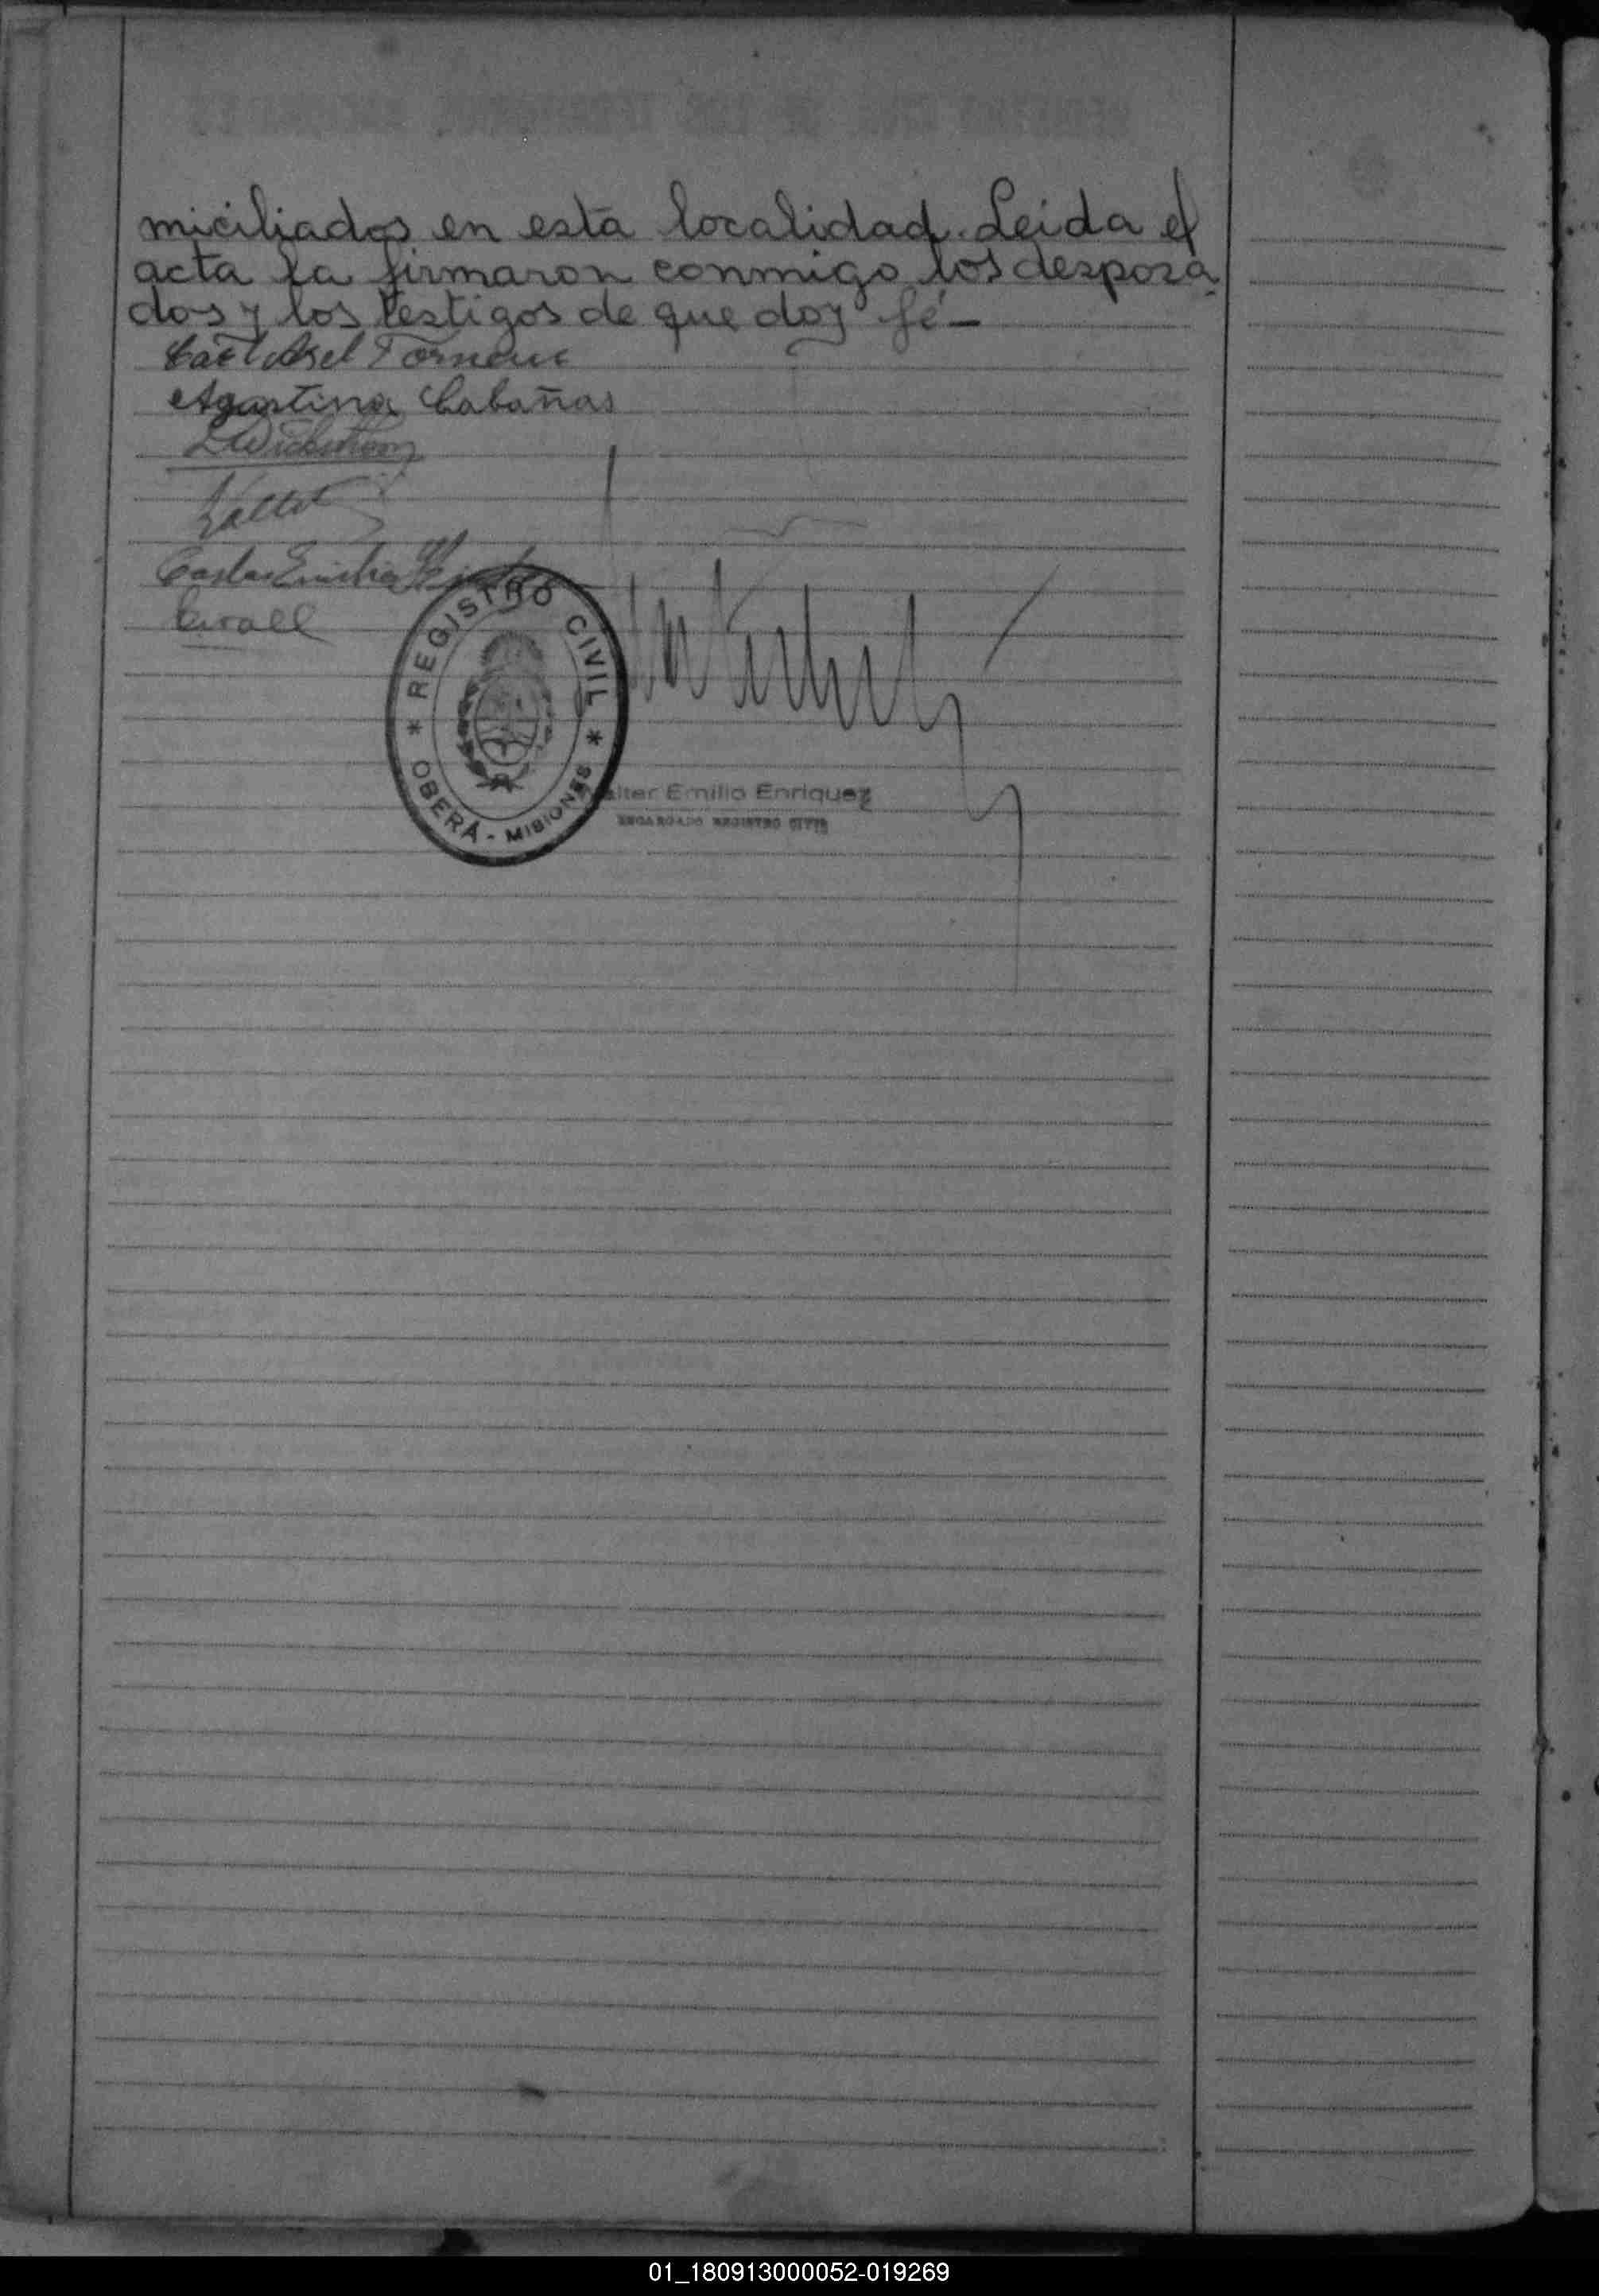 miciliados en esta localidad. Leida el
acta la firmaron conmigo los desposa
dos y los testigos de que doy fé—
Carl Axel
Agustina Cabañas
Carlos
REGISTRO CIVIL
* OBERÁ - MISIONES *
Walter Emilio Enriquez
ENCARGADO REGISTRO CIVIL
01_180913000052-019269